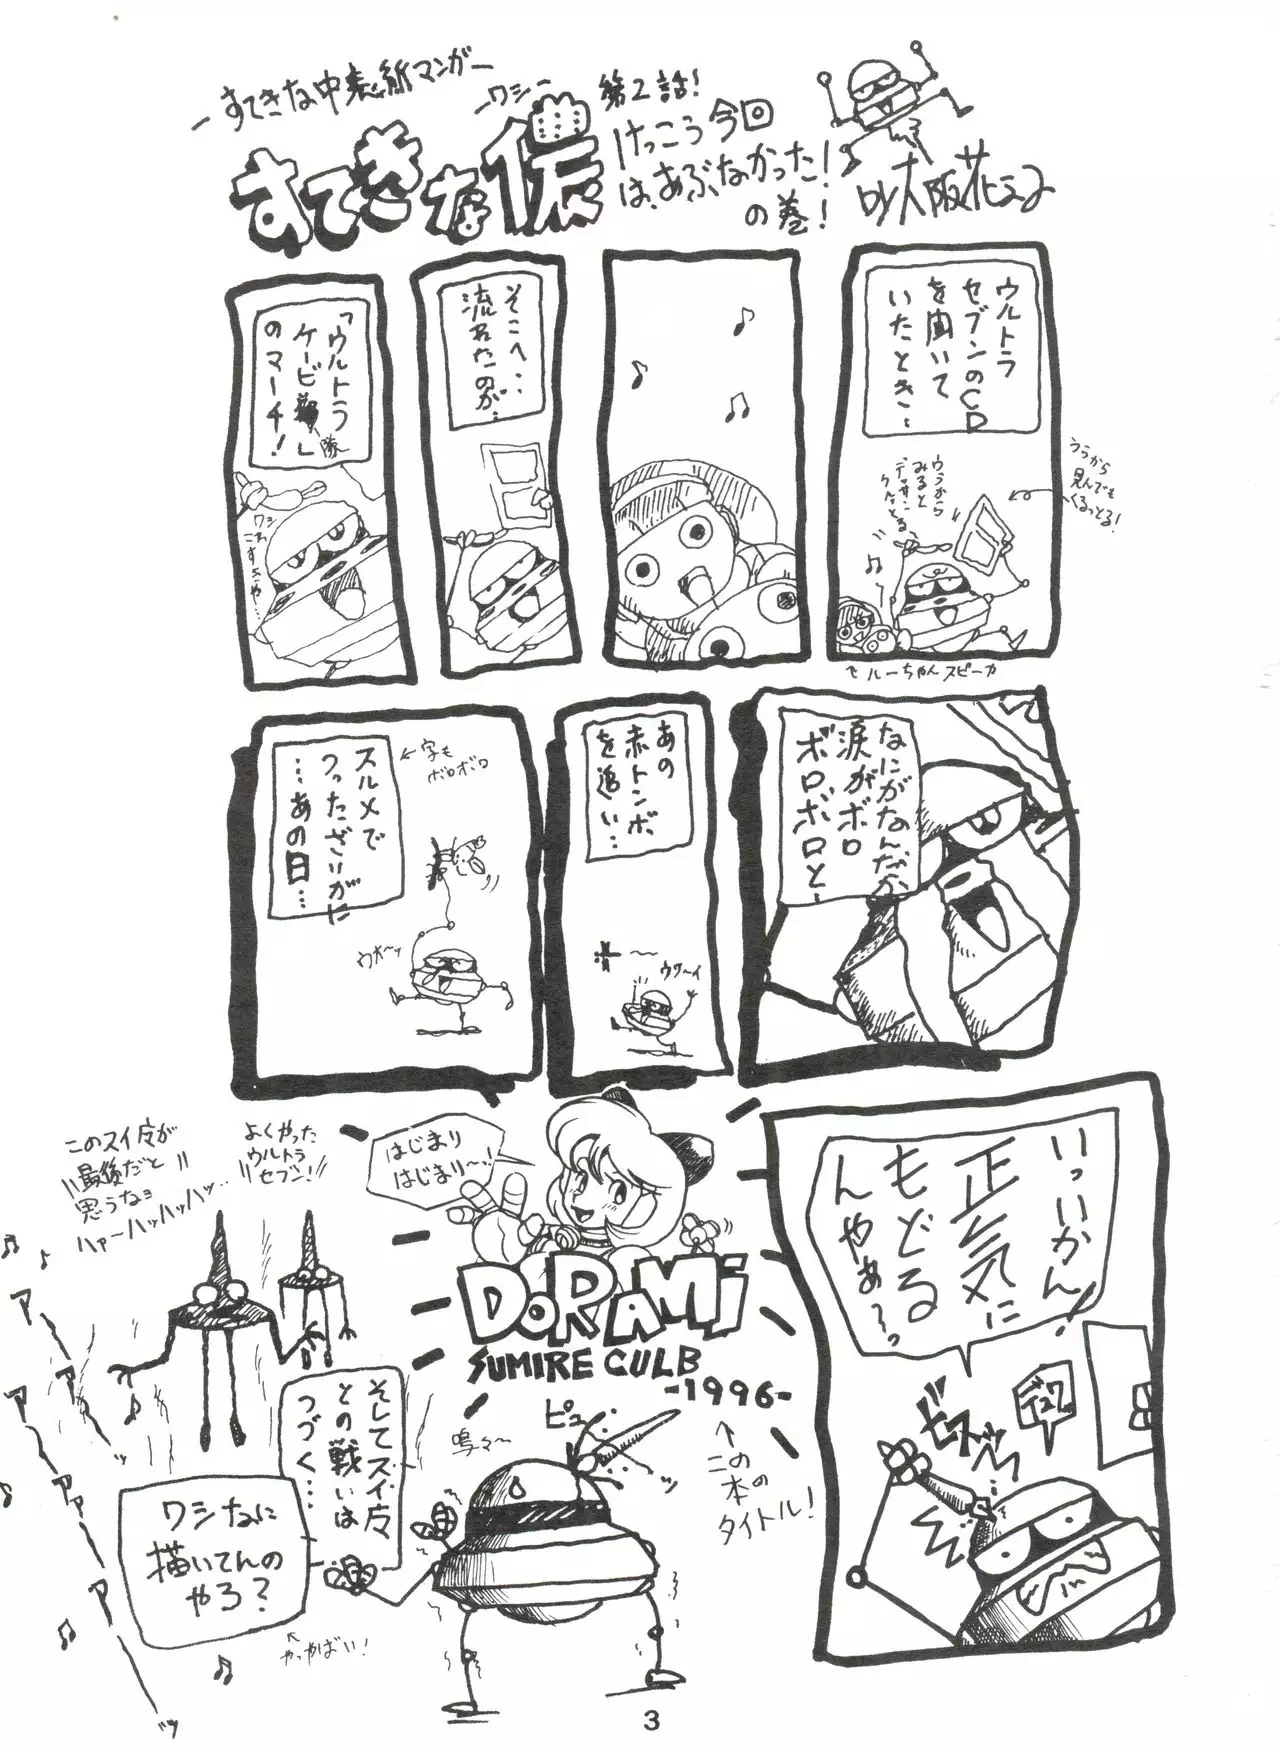 ーすてきな中表紙マンガー
ーワシー
すてきな儂
第2話!
けっこう今回
は、あぶなかった!
の巻!
by大阪花子
ウルトラ
セブンのCD
を聞いて
いたとき…
ううから
見んでも
くるっとる!
ウラから
みると
デッサン
クルっとる
ルーちゃんスピーカ
そこへ…
流れたのが…
「ウルトラ
ケービ隊」
のマーチ!
ワシ
これ
すきや…
なにがなんだか
涙がボロ
ボロボロと…
あの
赤トンボ
を追い…
ウワ〜イ
スルメで
つったざりがに
…あの日…
←字も
ボロボロ
ウオ〜ッ
いっいかん!
正気に
もどる
んやぁ〜っ
デュワ
ビスッ
はじまり
はじまり〜!
DORAMi
SUMIRE CULB
-1996-
↑
この
本の
タイトル!
よくやった
ウルトラ
セブン!
このスイ星が
最後だと
思うなョ
ハァ〜ハッハッハッ…
アー
アー
アァァーッ
そしてスイ星
との戦いは
つづく…
ワシなに
描いてんの
やろ?
やっやばい!
鳴々〜
ピュー
ッ
3